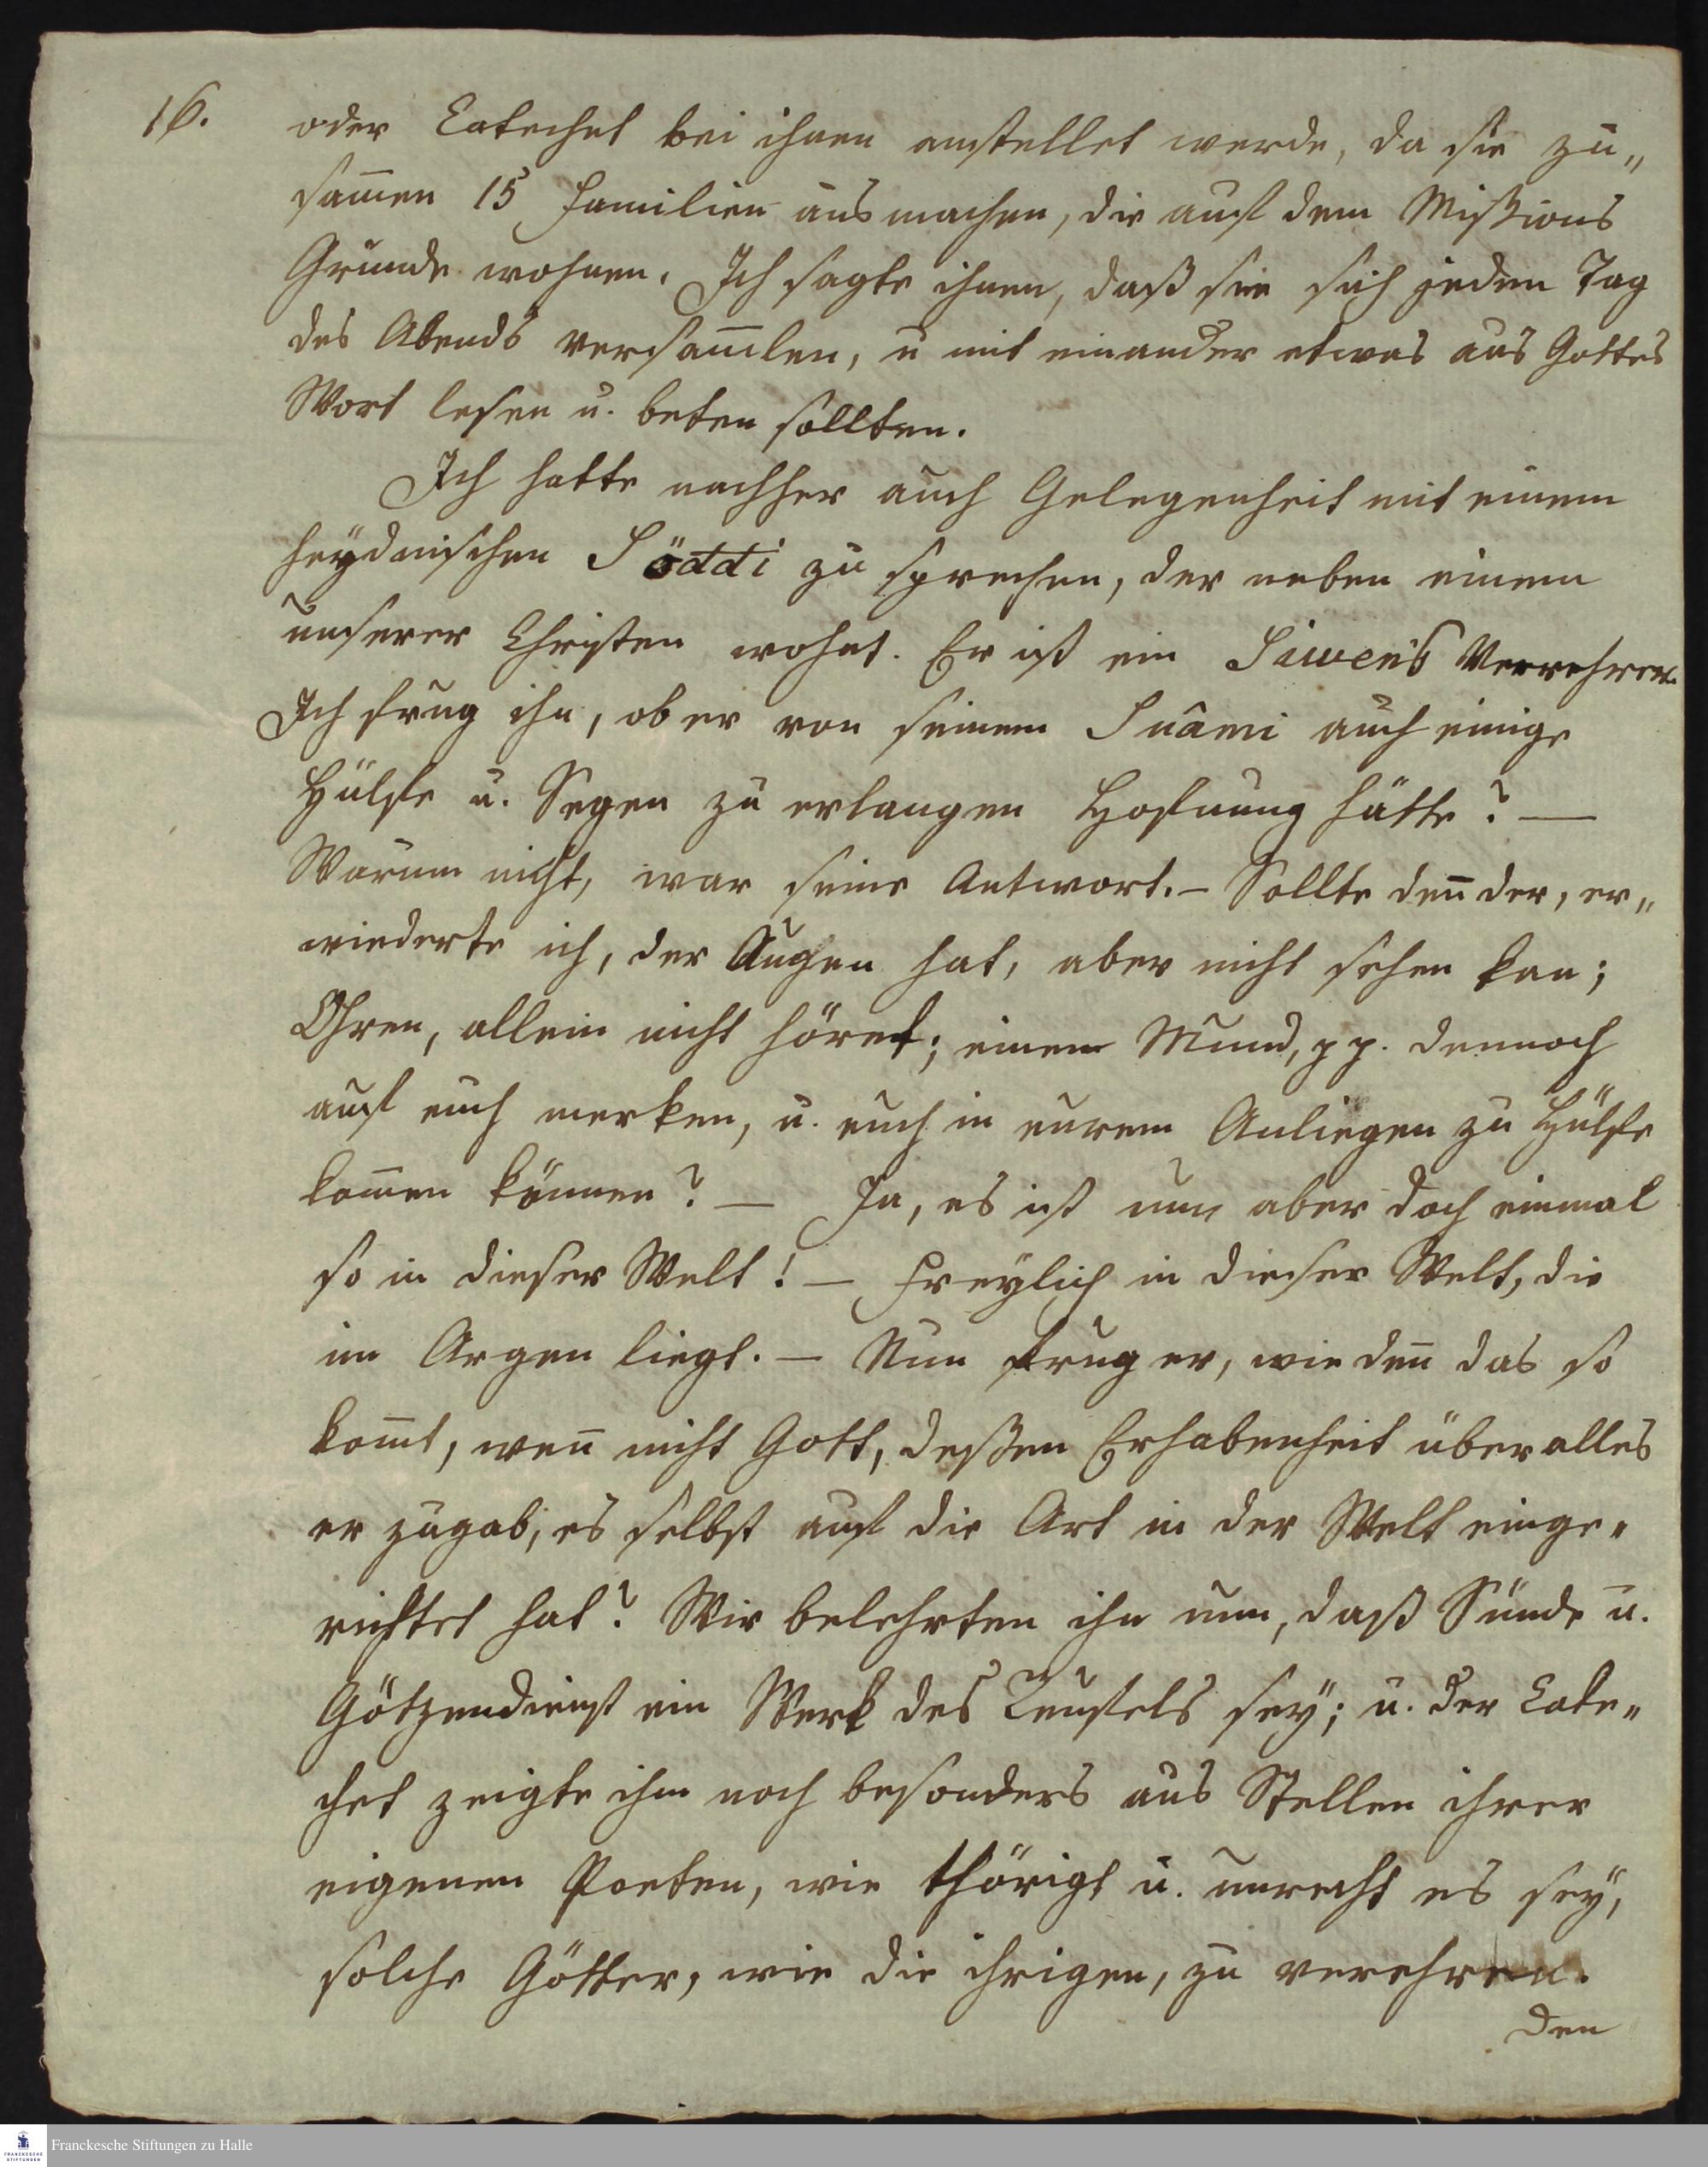 16.
oder Catechet bei ihnen anstellet werde, da sie zu„
sam̄en 15 Familien ausmachen, die auf dem Mißions
Grunde wohnen. Ich sagte ihnen, daß sie sich jeden Tag
des Abends versam̄len, u mit einander etwas aus Gottes
Wort lesen u. beten sollten.
Ich hatte nachher auch Gelegenheit mit einem
heÿdnischen Söddi zu sprechen, der neben einem
unserer Christen wohnt. Er ist ein Siwen's Verrehrer.
Ich frug ihn, ob er von seinem Suâmi auch einige
Hülfe u. Segen zu erlangen Hofnung hätte? —
Warum nicht, war seine Antwort. — Sollte den̄ der, er„
wiederte ich, der Augen hat, aber nicht sehen kan;
Ohren, allein nicht höret; einen Mund, pp. dennoch
auf euch merken, u. euch in eurem Anliegen zu Hülfe
kom̄en können? — Ja, es ist nun aber doch einmal
so in dieser Welt! — Freÿlich in dieser Welt, die
im Argen liegt. — Nun frug er, wie den̄ das so
kom̄t, wen̄ nicht Gott, deßen Erhabenheit über alles
er zugab, es selbst auf die Art in der Welt einge„
richtet hat? Wir belehrten ihn nun, daß Sünde u.
Götzendienst ein Werk des Teufels seÿ; u. der Cate„
chet zeigte ihm noch besonders aus Stellen ihrer
eigenen Poeten, wie thörigt u. unrecht es seÿ,
solche Götter, wie die ihrigen, zu verehren.
Den
Franckesche Stiftungen zu Halle
FRANCKESCHE
STIFTUNGEN